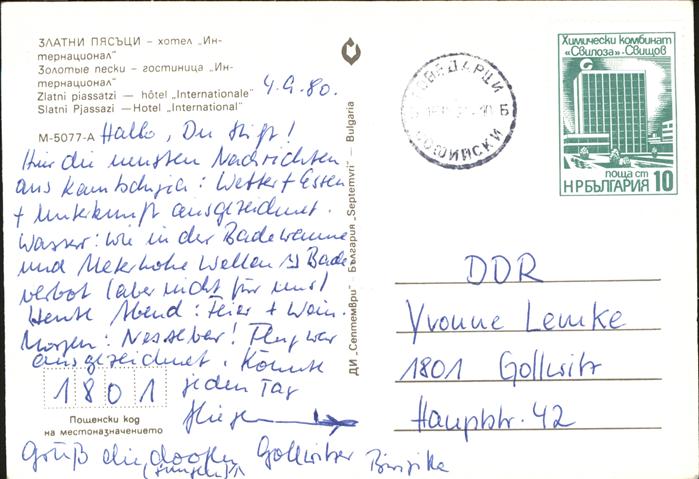 ЗЛАТНИ ПЯСЪЦИ – хотел „Ин-
тернационал"
Золотые пески – гостиница „Ин-
тернационал"
Zlatni piassatzi — hôtel „Internationale"
Slatni Pjassazi — Hotel „International"
4.9.80.
М-5077-А
Hallo, Du Stift!
Hier die neusten Nachrichten
aus Kamtschija: Wetter + Essen
+ Unterkunft ausgezeichnet.
Wasser: wie in der Badewanne
und Meterhohe Wellen Bade-
verbot (aber nicht für uns)
Heute Abend: Feier + Wein.
Morgen: Nessebar! Flug war
ausgezeichnet. Könnte
jeden Tag
fliegen
1801
Пощенски код
на местоназначението
Grüß die doofen Gollwitzer
(Jungen)
ДИ „Септември" България „Septemvri" — Bulgaria
Химически комбинат
«Свилоза»-Свищов
поща ст
НРБЪЛГАРИЯ 10
DDR
Yvonne Lemke
1801 Gollwitz
Hauptstr. 42